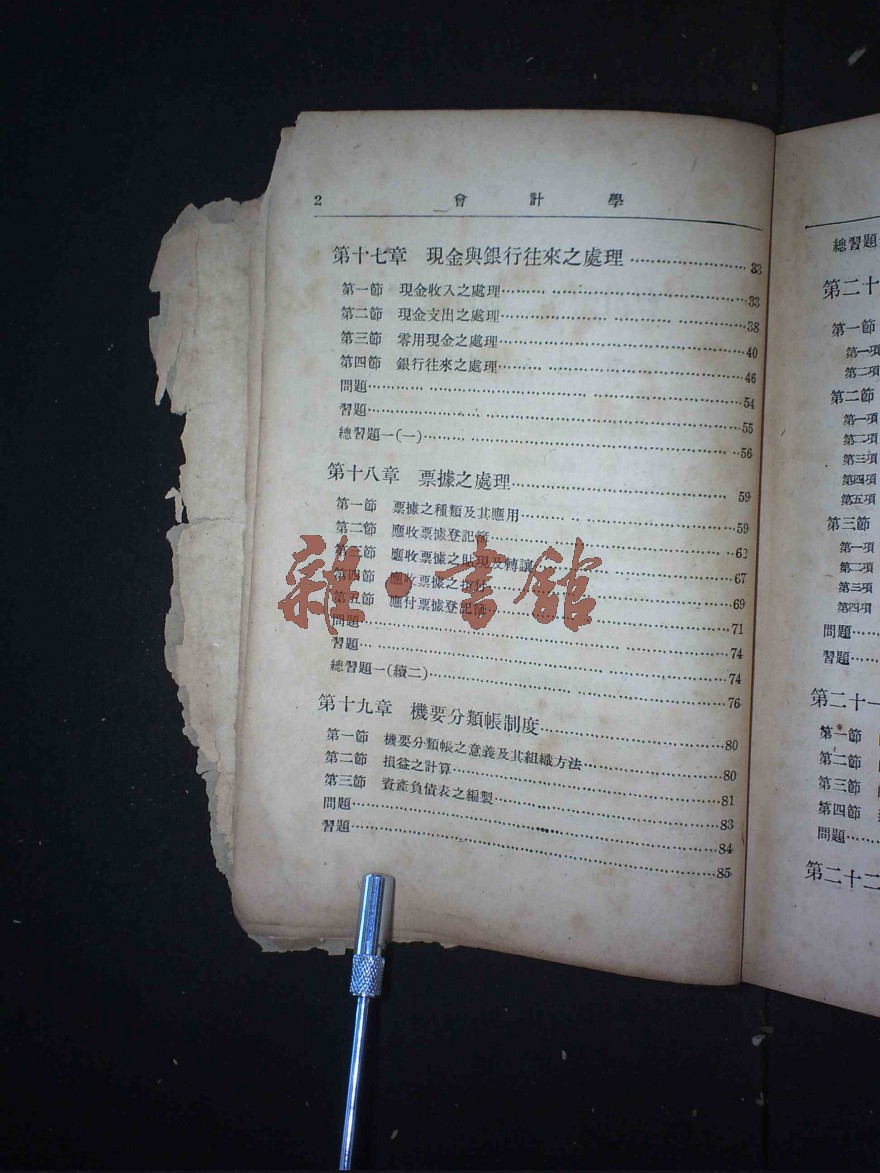 2 會計學
第十七章 現金與銀行往來之處理 33
第一節 現金收入之處理 33
第二節 現金支出之處理 38
第三節 零用現金之處理 40
第四節 銀行往來之處理 46
問題 54
習題 55
總習題一(一) 56
第十八章 票據之處理 59
第一節 票據之種類及其應用 59
第二節 應收票據登記簿 62
第三節 應收票據之貼現及轉讓 67
第四節 應收票據之拒付 69
第五節 應付票據登記簿 71
問題 74
習題 74
總習題一(續二) 76
第十九章 機要分類帳制度 80
第一節 機要分類帳之意義及其組織方法 80
第二節 損益之計算 81
第三節 資產負債表之編製 83
問題 84
習題 85
雜·書館
總習題
第二十
第一節
第一項
第二項
第二節
第一項
第二項
第三項
第四項
第五項
第三節
第一項
第二項
第三項
第四項
問題
習題
第二十一
第一節
第二節
第三節
第四節
問題
第二十二